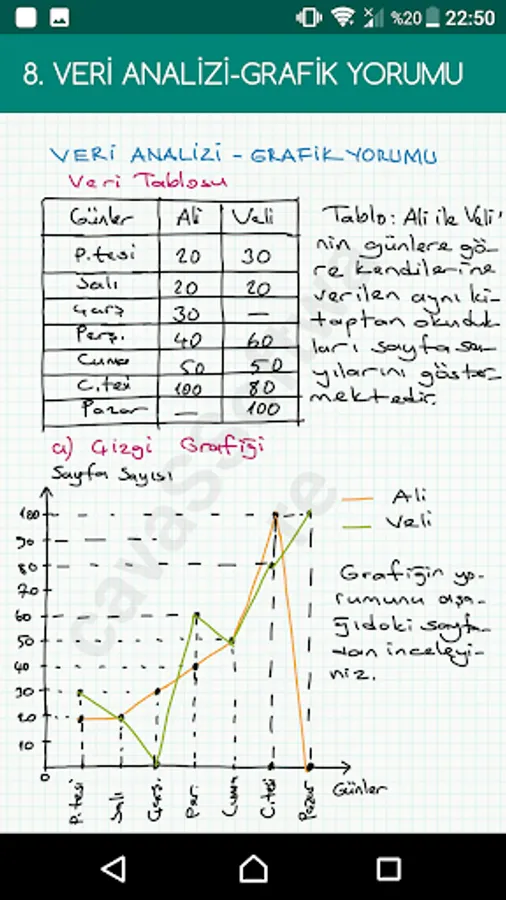 %20 22:50
8. VERİ ANALİZİ-GRAFİK YORUMU
VERİ ANALİZİ - GRAFİK YORUMU
Veri Tablosu
Günler Ali Veli
P.tesi 20 30
Salı 20 20
Çarş 30 —
Perş. 40 60
Cuma 50 50
C.tesi 100 80
Pazar — 100
Tablo: Ali ile Veli'
nin günlere gö-
re kendilerine
verilen aynı ki-
taptan okuduk-
ları sayfa sa-
yılarını göster-
mektedir.
a) Çizgi Grafiği
Sayfa Sayısı
100
90
80
70
60
50
40
30
20
10
0
P.tesi
Salı
Çarş.
Per.
Cuma
C.tesi
Pazar
Günler
Ali
Veli
Grafiğin yo-
rumunu aşa-
ğıdaki sayfa-
dan inceleyi-
niz.